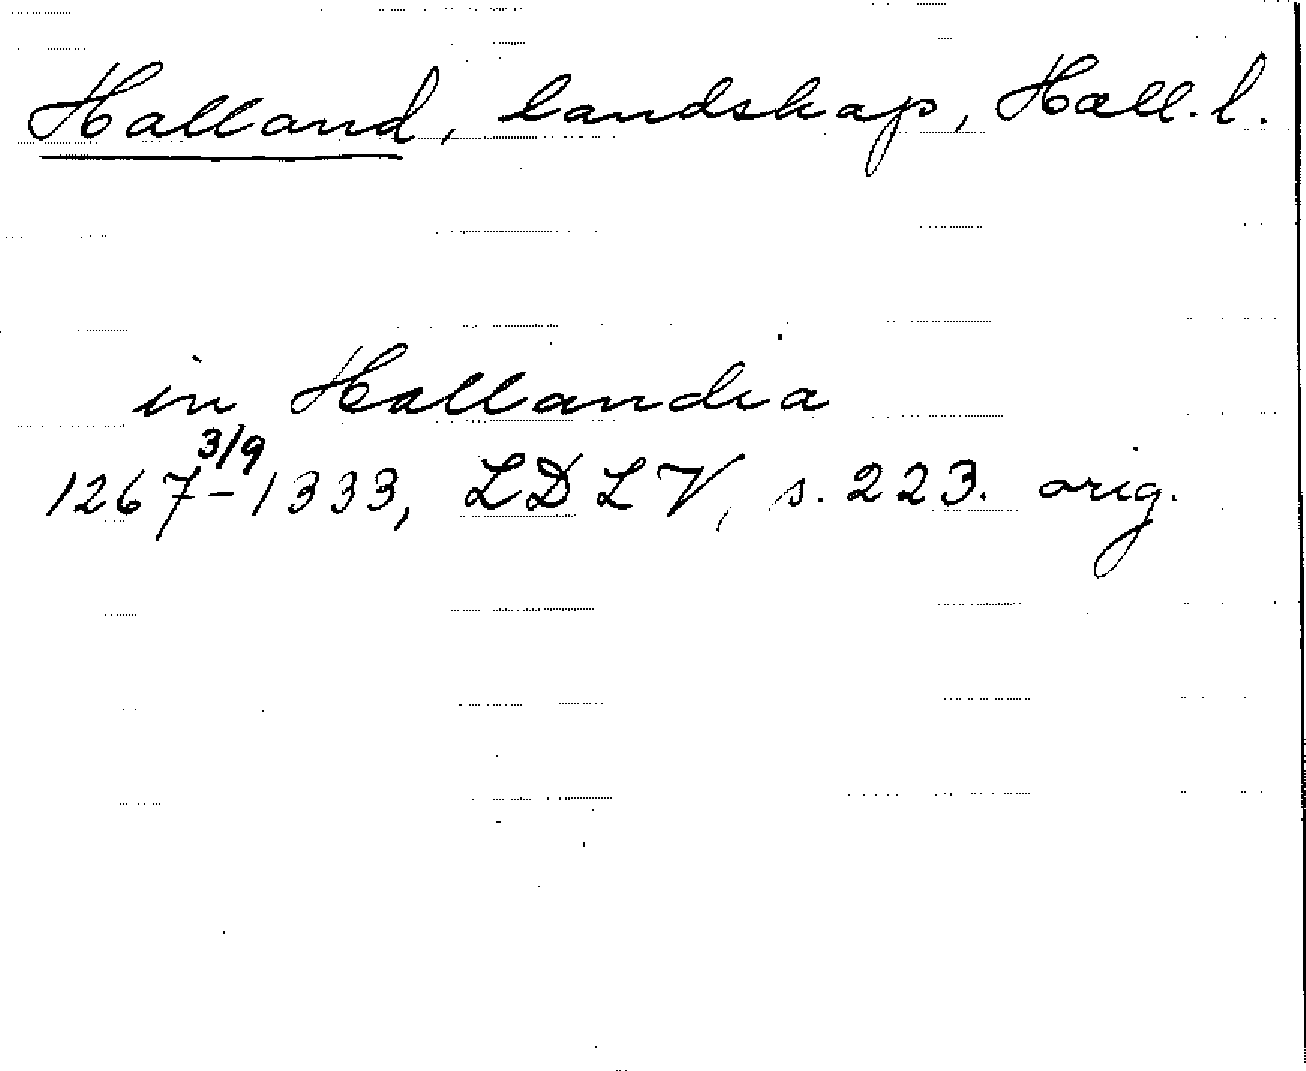 Halland, landskap, Hall. l.
in Hallandia
1267 3/9 - 1333, LDLV, s. 223. orig.